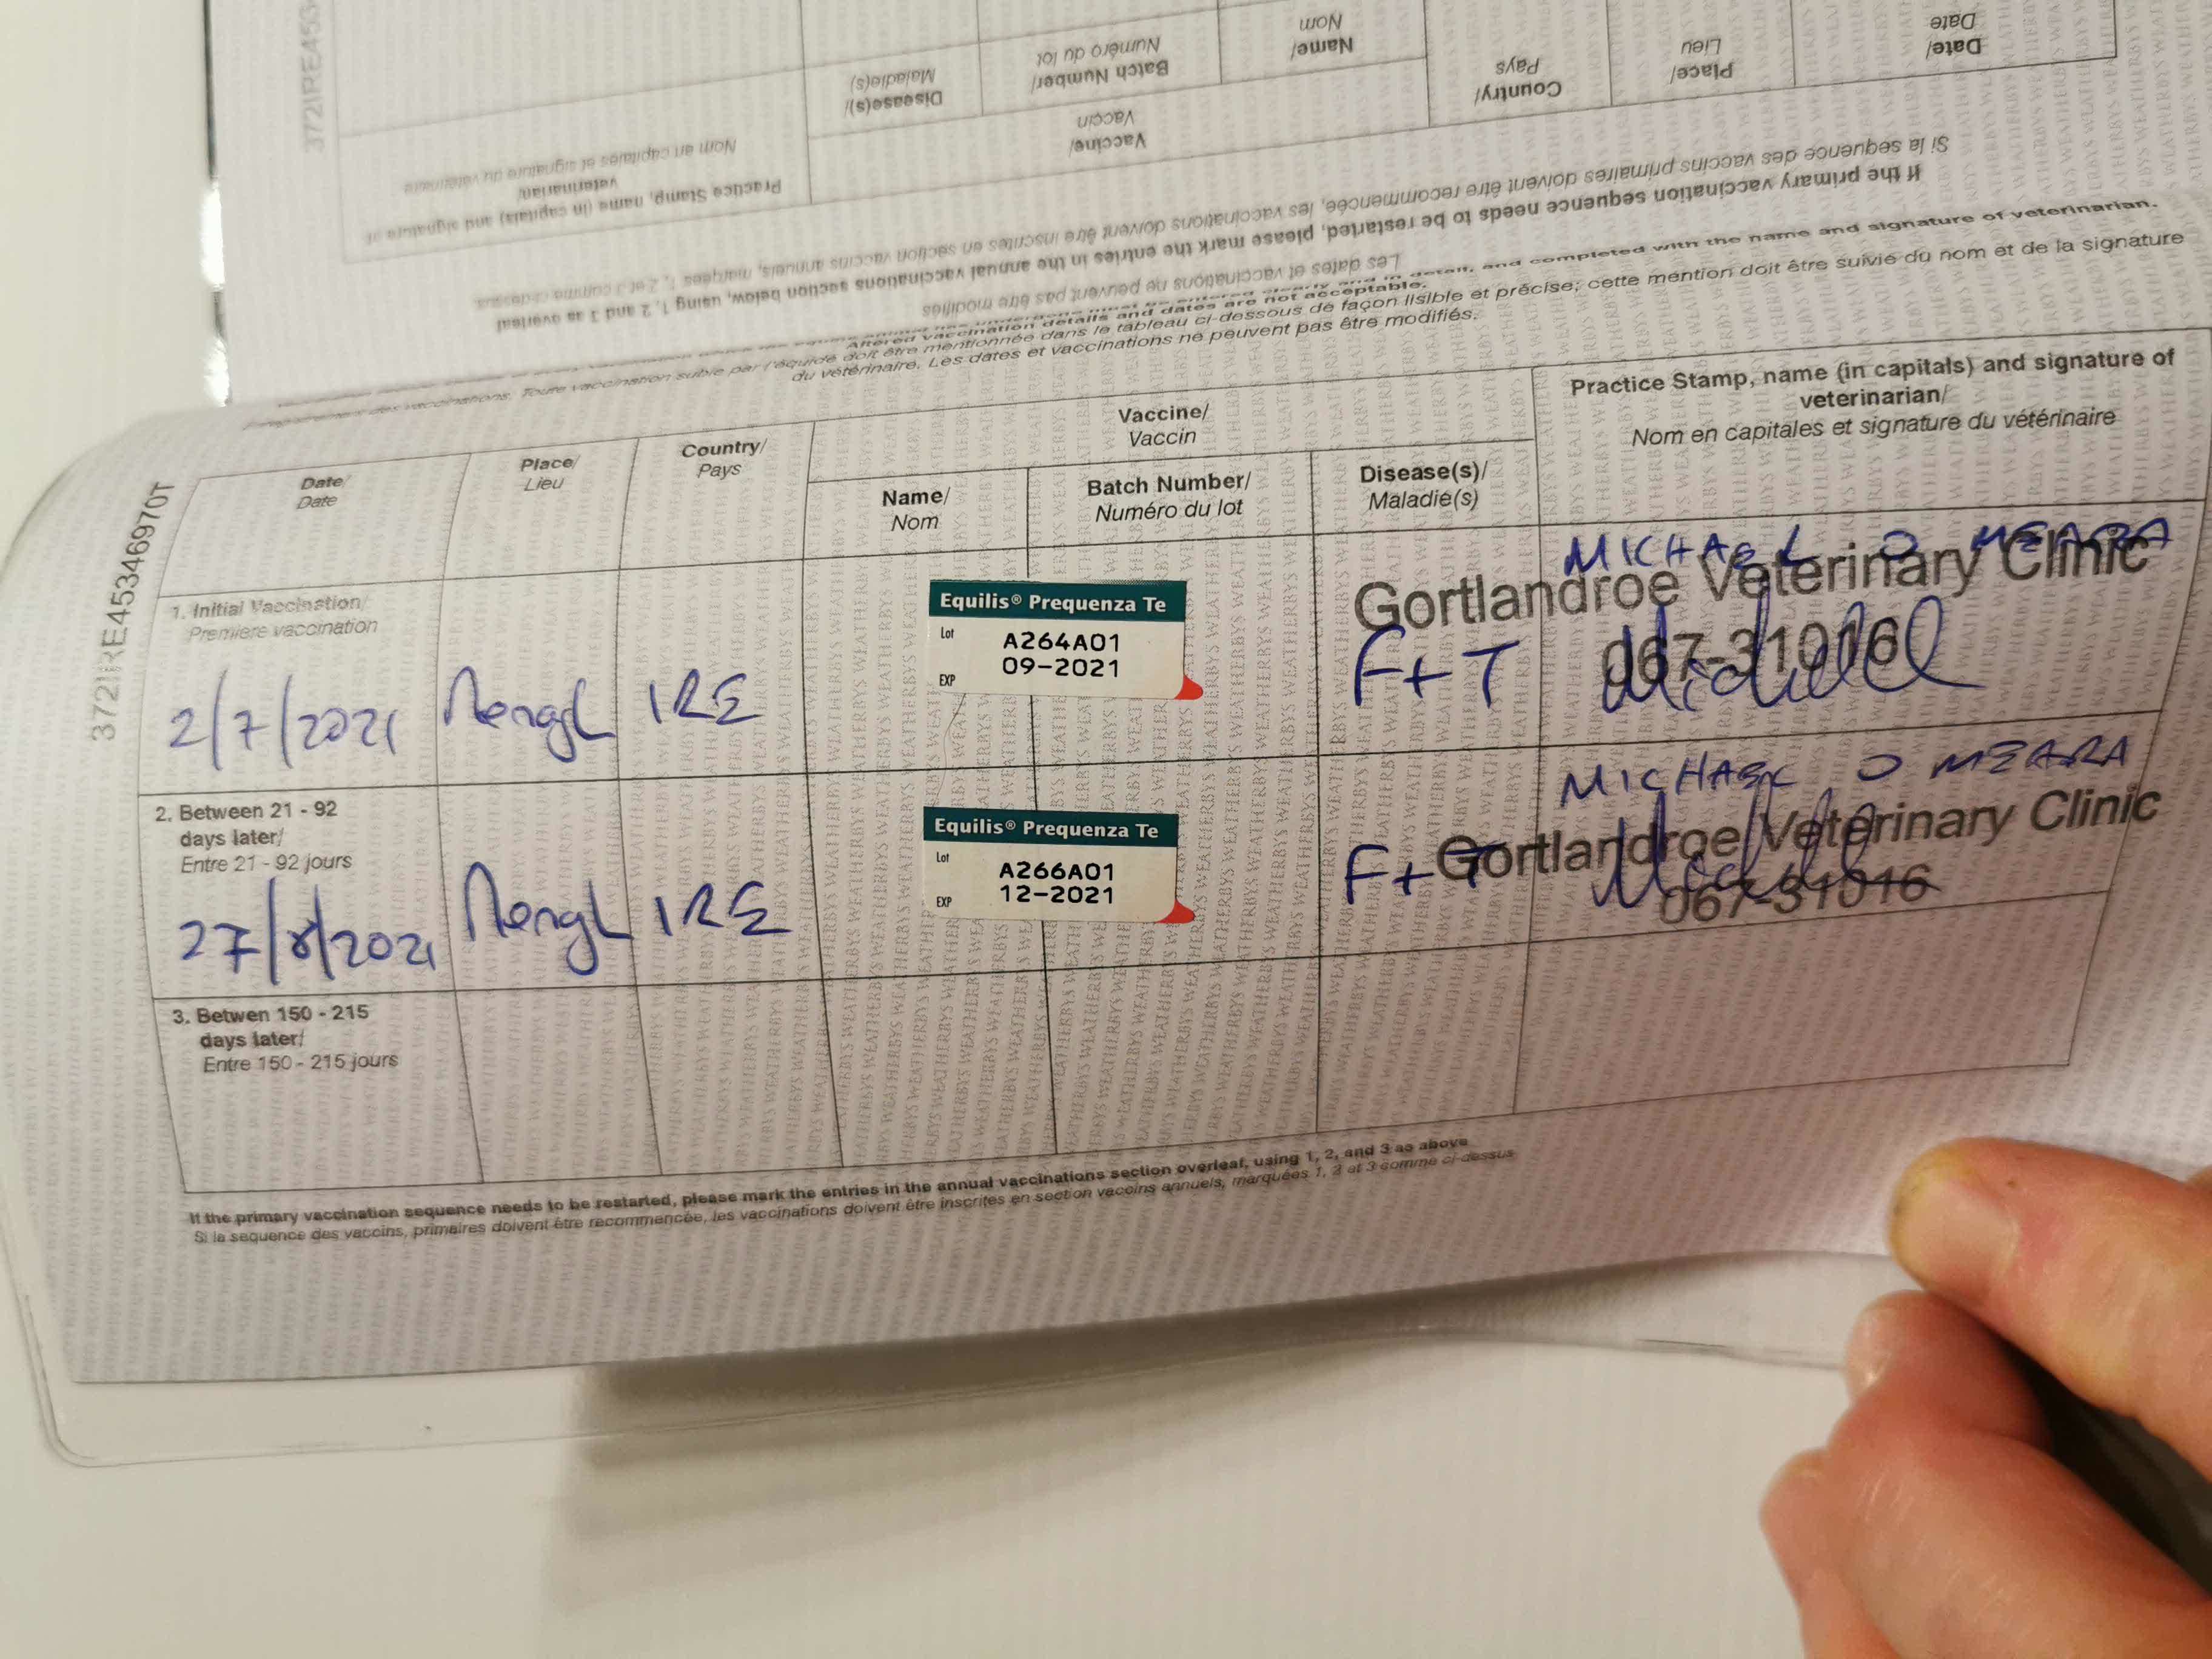 372IRE453
Date/
Date
Place/
Lieu
Country/
Pays
Vaccine/
Vaccin
Name/
Nom
Batch Number/
Numéro du lot
Disease(s)/
Maladie(s)
Practice Stamp, name (in capitals) and signature of
veterinarian/
Nom an capitales et signature du vétérinaire
If the primary vaccination sequence needs to be restarted, please mark the entries in the annual vaccinations section below, using 1, 2 and 3 as overleaf
Si la sequence des vaccins primaires doivent être recommencée, les vaccinations doivent être inscrites en section vaccins annuels, marquées 1, 2 et 3 comme ci-dessus
Les dates et vaccinations ne peuvent pas être modifiés
in detail, and completed with the name and signature of veterinarian.
Altered vaccination details and dates are not acceptable.
des vaccinations. Toute vaccination subie par l'équidé doit être mentionnée dans le tableau ci-dessous de façon lisible et précise; cette mention doit être suivie du nom et de la signature
du vétérinaire. Les dates et vaccinations ne peuvent pas être modifiés.
372IRE45346970T
Date/
Date
Place/
Lieu
Country/
Pays
Vaccine/
Vaccin
Name/
Nom
Batch Number/
Numéro du lot
Disease(s)/
Maladie(s)
Practice Stamp, name (in capitals) and signature of
veterinarian/
Nom en capitales et signature du vétérinaire
1. Initial Vaccination/
Premiere vaccination
2/7/2021
IRE
Equilis® Prequenza Te
Lot A264A01
EXP 09-2021
F+T
MICHAEL O MEARA
Gortlandroe Veterinary Clinic
067-31016
2. Between 21 - 92
days later/
Entre 21 - 92 jours
27/8/2021
IRE
Equilis® Prequenza Te
Lot A266A01
EXP 12-2021
F+T
MICHAEL O MEARA
Gortlandroe Veterinary Clinic
067-31016
3. Betwen 150 - 215
days later/
Entre 150 - 215 jours
If the primary vaccination sequence needs to be restarted, please mark the entries in the annual vaccinations section overleaf, using 1, 2, and 3 as above
Si la sequence des vaccins, primaires doivent être recommencée, les vaccinations doivent être inscrites en section vaccins annuels, marquées 1, 2 et 3 comme ci-dessus